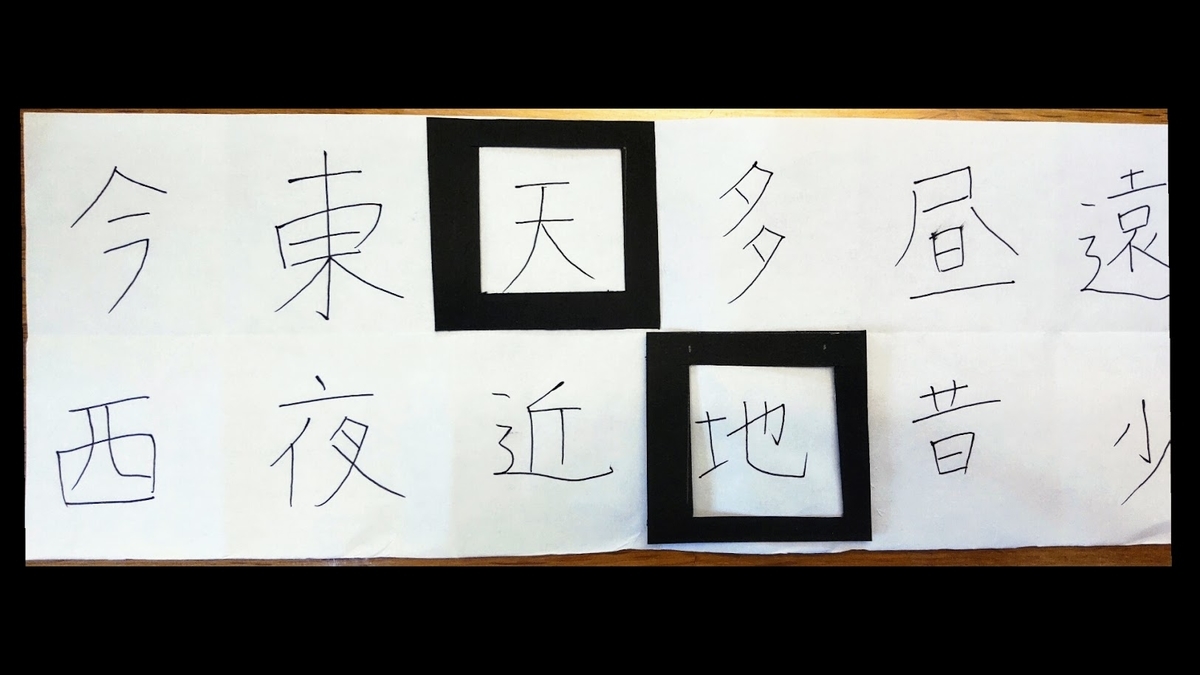 今東天多昼遠
西夜近地昔少